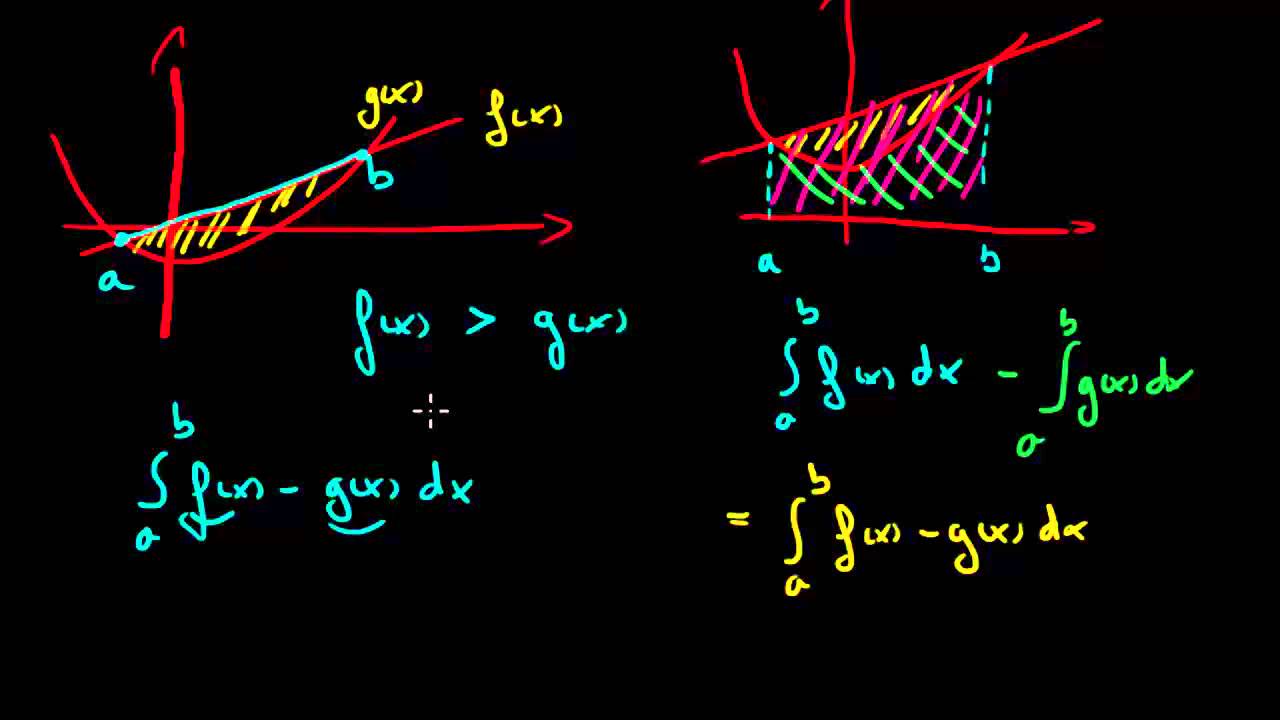 g(x) f(x)
b
a
f(x) > g(x)
∫_a^b f(x) - g(x) dx
a b
∫_a^b f(x) dx - ∫_a^b g(x) dx
= ∫_a^b f(x) - g(x) dx